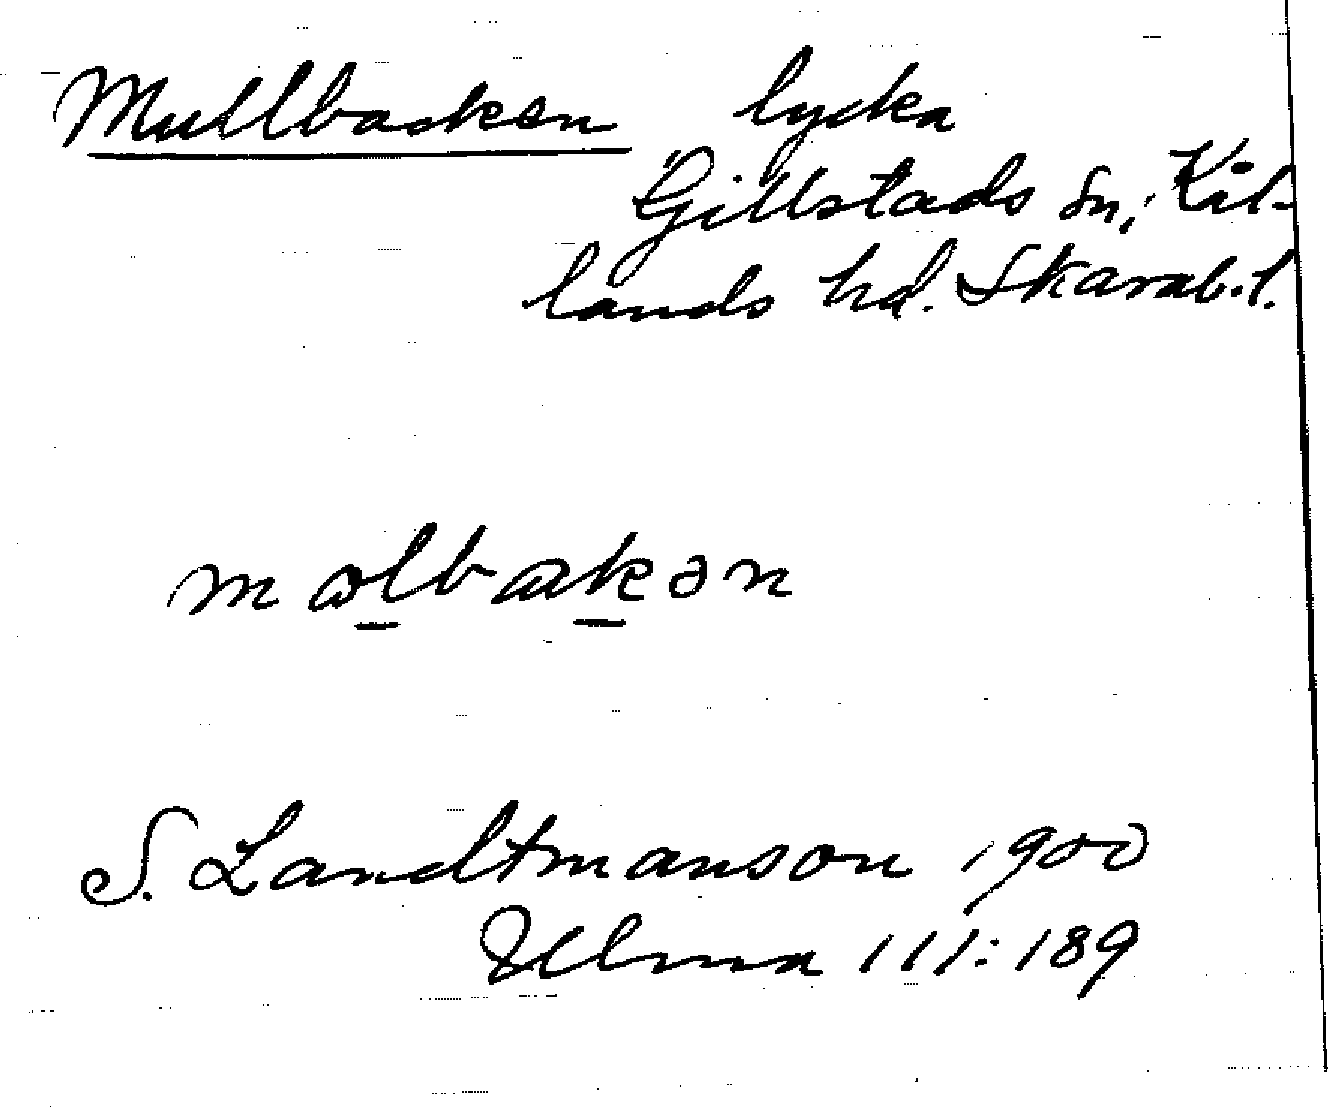 Mullbacken lycka
Gillstads sn, Kål-
lands hd. Skarab.l.
mɷlbakən
S. Landtmanson 1900
Ulma 111:189